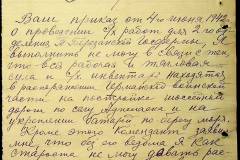 Ваш приказ от 4го июня 1942
о проведении с/х работ для 2го от-
деления А. Березанской
выполнить не могу в связи с тем,
что вся рабочая и тягловая
сила и с/х инвентарь находятся
в распоряжении Германской воинской
части на постройке шоссейной
дороги по селу и на
укреплении батарей по берегу моря.
Кроме этого Комендант заявил
мне, что без его ведома Я как
Староста не могу давать рас-